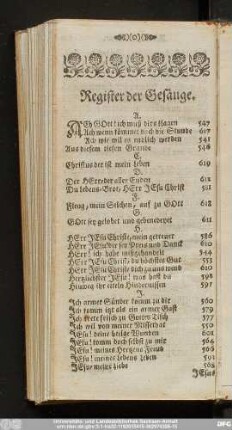 )o(
Register der Gesänge.
A.
Ach GOtt ich muß dirs klagen 547
Ach wenn kömmet doch die Stunde 617
Ach wie will es endlich werden 541
Aus diesem tiefen Grunde 546
C.
Christus der ist mein Leben 619
D.
Der HErr der aller Enden 612
Du Lebens-Brot, HErr JEsu Christ 511
F.
Fleug, mein Seelchen, auf zu GOtt 618
G.
GOtt sey gelobet und gebenedeyet 611
H.
HErr JEsu Christe, mein getreuer 586
HErr JEsu dir sey Preis und Dank 610
HErr! ich habe mißgehandelt 544
HErr JEsu Christ du höchstes Gut 551
HErr JEsu Christe dich zu uns wend 610
Herzliebster JEsu! was hast du 598
Hinweg ihr eiteln Hindernissen 591
J.
Ich armer Sünder komm zu dir 560
Ich komm itzt als ein armer Gast 579
Ich trete frisch zu GOttes Tisch 577
Ich will von meiner Missethat 550
JEsu! deine heilge Wunden 601
JEsu! komm doch selbst zu mir 564
JEsu! meines Herzens Freud 606
JEsu! meines Lebens Leben 501
JEsu, meine Liebe
JEsus